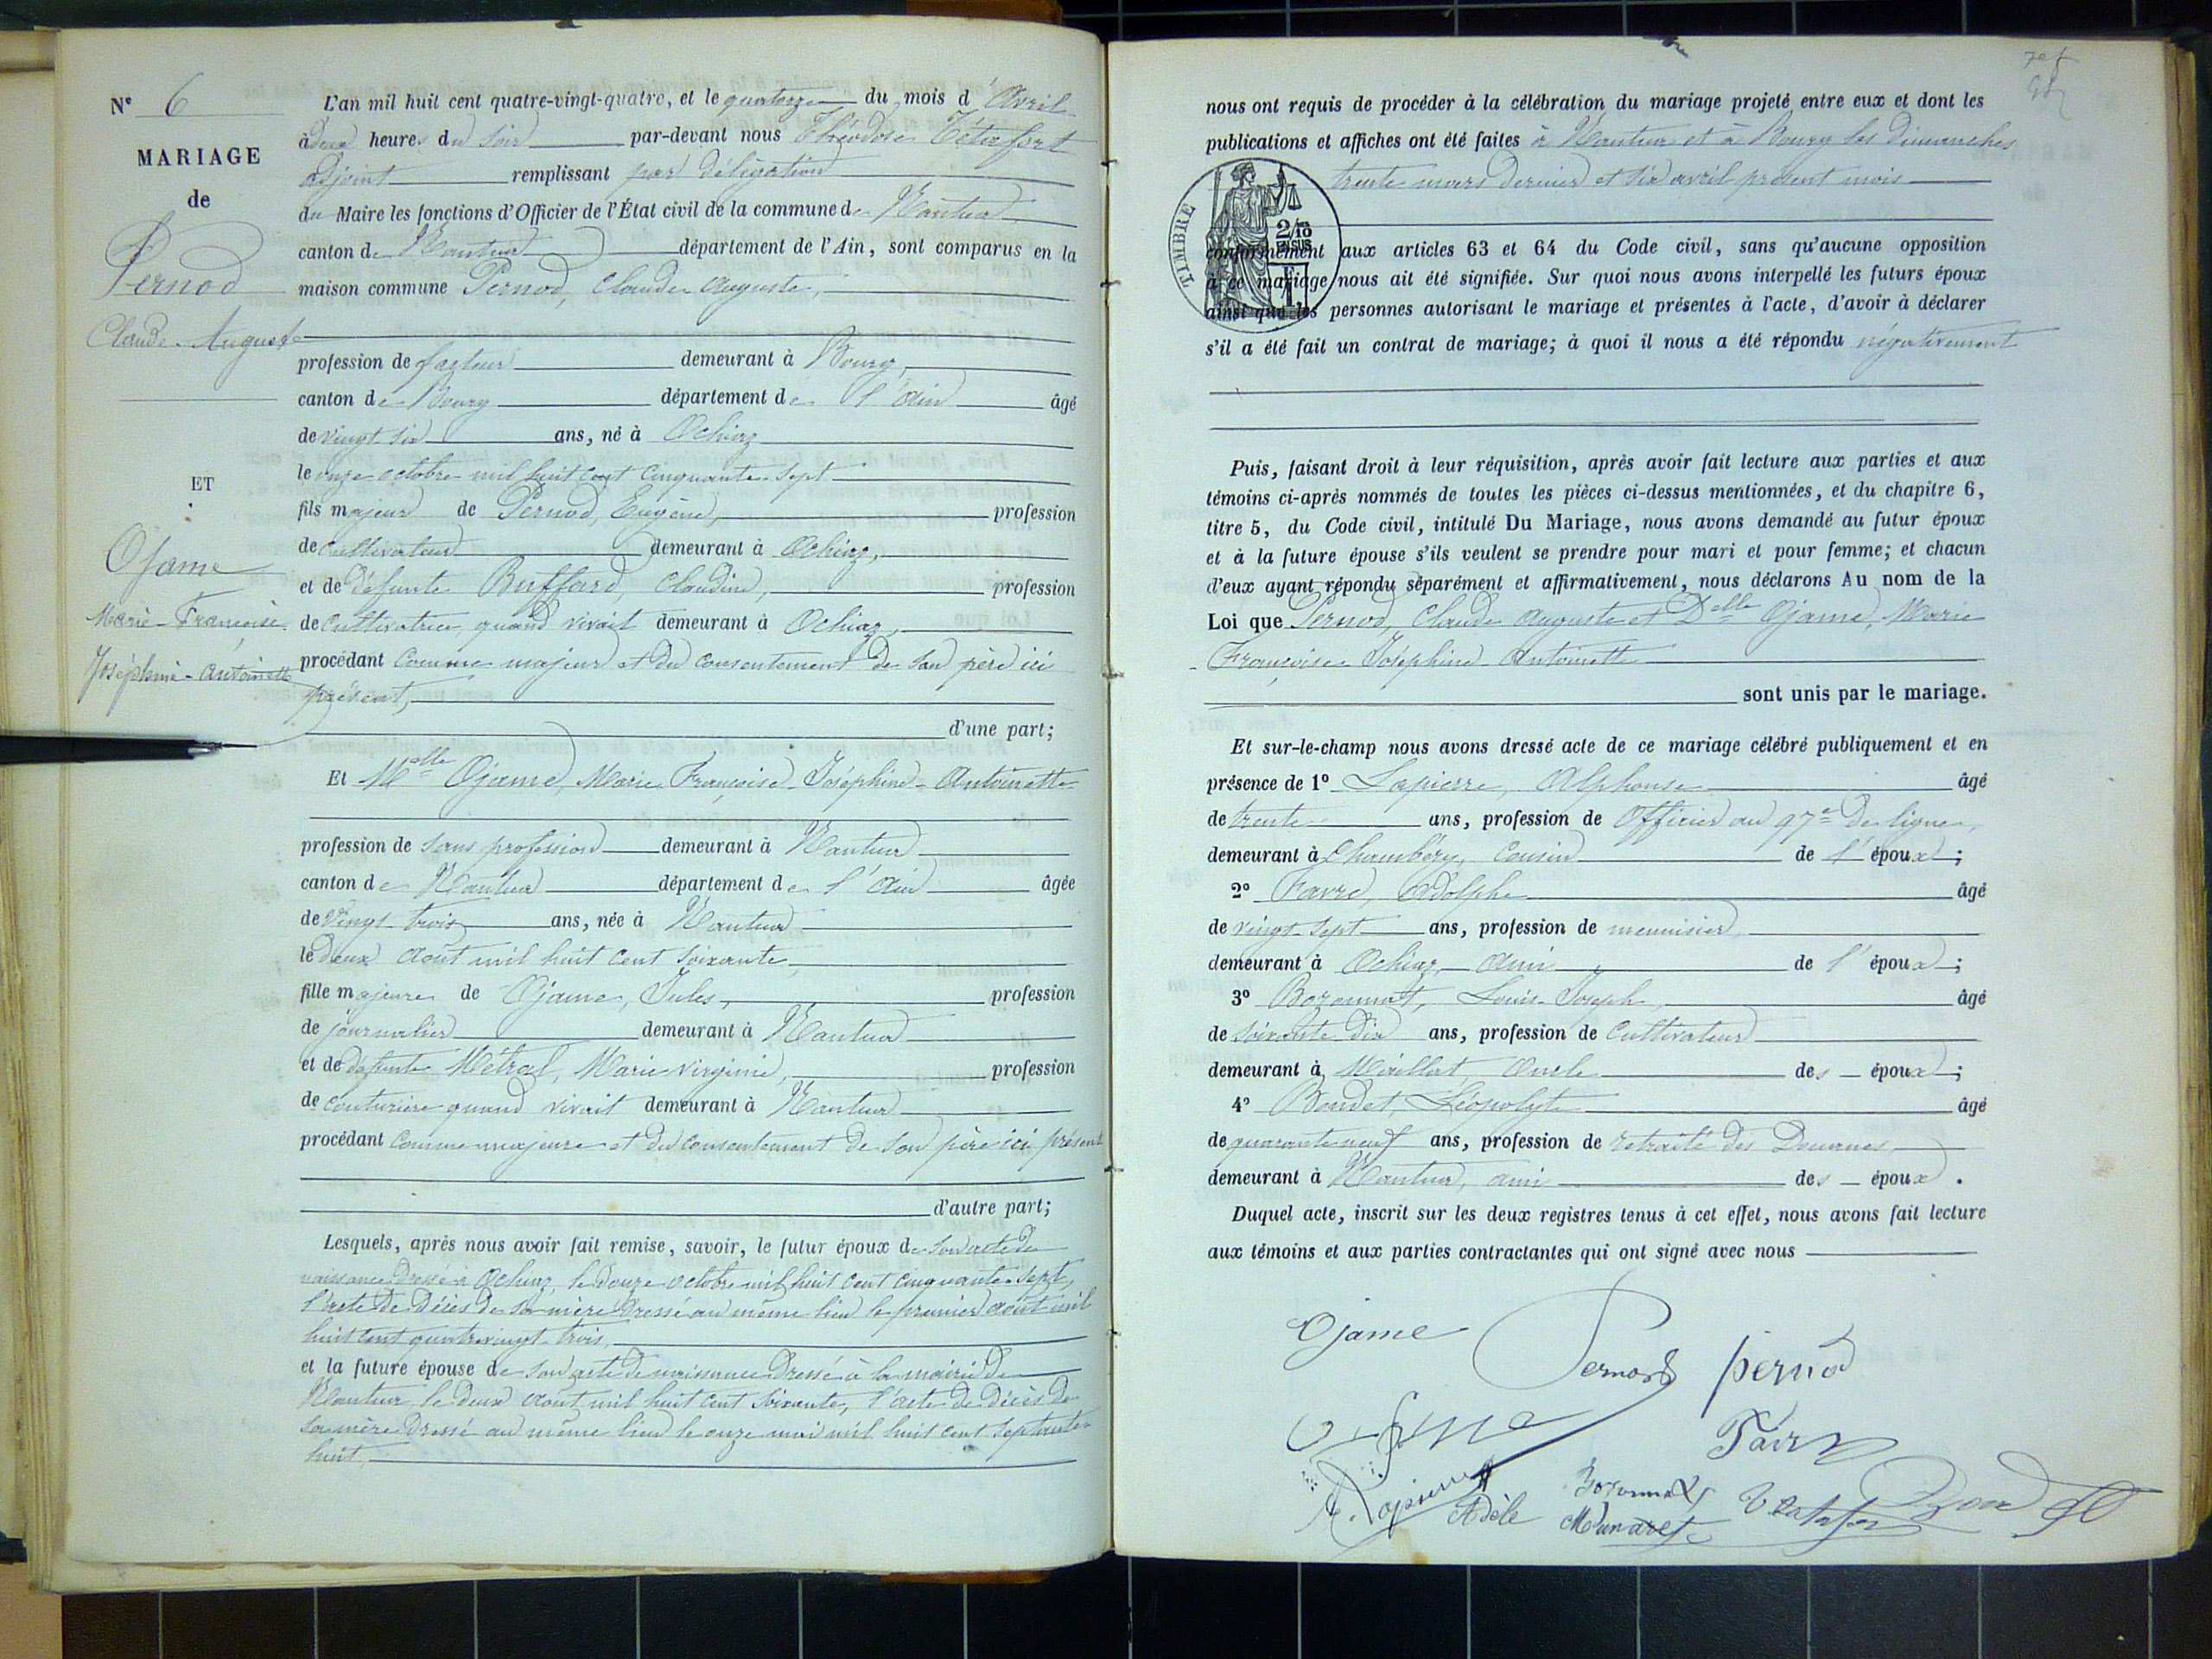 N° 6
MARIAGE
de
Pernod
Claude-Auguste
ET
Ojame
Marie-Françoise
Joséphine-Antoinette
L'an mil huit cent quatre-vingt-quatre, et le quatorze du mois d'Avril
à deux heures du soir par-devant nous Théodose
adjoint remplissant par délégation
du Maire les fonctions d'Officier de l'État civil de la commune de Nantua
canton de Nantua département de l'Ain, sont comparus en la
maison commune Pernod, Claude Auguste,
profession de facteur demeurant à Bourg,
canton de Bourg département de l'Ain âgé
de vingt six ans, né à Ochiaz
le onze octobre mil huit cent cinquante-sept
fils majeur de Pernod, Eugène, profession
de cultivateur demeurant à Ochiaz,
et de défunte Buffard, Claudine, profession
de cultivatrice, quand vivait demeurant à Ochiaz,
procédant comme majeur et du consentement de son père ici
présent,
d'une part;
Et Melle Ojame, Marie Françoise-Joséphine-Antoinette
profession de sans profession demeurant à Nantua
canton de Nantua département de l'Ain âgée
de vingt trois ans, née à Nantua
le deux août mil huit cent soixante,
fille majeure de Ojame, Jules, profession
de journalier demeurant à Nantua
et de défunte Métral, Marie Virginie, profession
de couturière quand vivait demeurant à Nantua
procédant comme majeure et du consentement de son père ici présent
d'autre part;
Lesquels, après nous avoir fait remise, savoir, le futur époux de son acte de
naissance dressé à Ochiaz, le douze octobre mil huit cent cinquante-sept,
l'acte de décès de sa mère dressé au même lieu le premier août mil
huit cent quatre vingt-trois,
et la future épouse de son acte de naissance dressé à la mairie de
Nantua le deux août mil huit cent soixante, l'acte de décès de
sa mère dressé au même lieu le onze mai mil huit cent septante-
huit,
nous ont requis de procéder à la célébration du mariage projeté entre eux et dont les
publications et affiches ont été faites à Nantua et à Bourg les dimanches
trente mars dernier et six avril présent mois
TIMBRE
2/10
EN SUS
conformément aux articles 63 et 64 du Code civil, sans qu'aucune opposition
à ce mariage nous ait été signifiée. Sur quoi nous avons interpellé les futurs époux
ainsi que les personnes autorisant le mariage et présentes à l'acte, d'avoir à déclarer
s'il a été fait un contrat de mariage; à quoi il nous a été répondu négativement
Puis, faisant droit à leur réquisition, après avoir fait lecture aux parties et aux
témoins ci-après nommés de toutes les pièces ci-dessus mentionnées, et du chapitre 6,
titre 5, du Code civil, intitulé Du Mariage, nous avons demandé au futur époux
et à la future épouse s'ils veulent se prendre pour mari et pour femme; et chacun
d'eux ayant répondu séparément et affirmativement, nous déclarons Au nom de la
Loi que Pernod, Claude Auguste et Delle Ojame, Marie
Françoise-Joséphine-Antoinette
sont unis par le mariage.
Et sur-le-champ nous avons dressé acte de ce mariage célébré publiquement et en
présence de 1° Lapierre, Alphonse âgé
de trente ans, profession de Officier au 97e de ligne,
demeurant à Chambéry, cousin de l'époux;
2° Favre, Adolphe âgé
de vingt-sept ans, profession de menuisier
demeurant à Ochiaz, ami de l'époux;
3° Bozonnat, Louis-Joseph âgé
de soixante dix ans, profession de cultivateur
demeurant à Meillat, oncle des époux;
4° Boudet, Léopolyte âgé
de quarante neuf ans, profession de retraité des Douanes
demeurant à Nantua, ami des époux.
Duquel acte, inscrit sur les deux registres tenus à cet effet, nous avons fait lecture
aux témoins et aux parties contractantes qui ont signé avec nous
Ojame Pernod pernod
A. Lapierre Adèle Bozonnat
Munaret